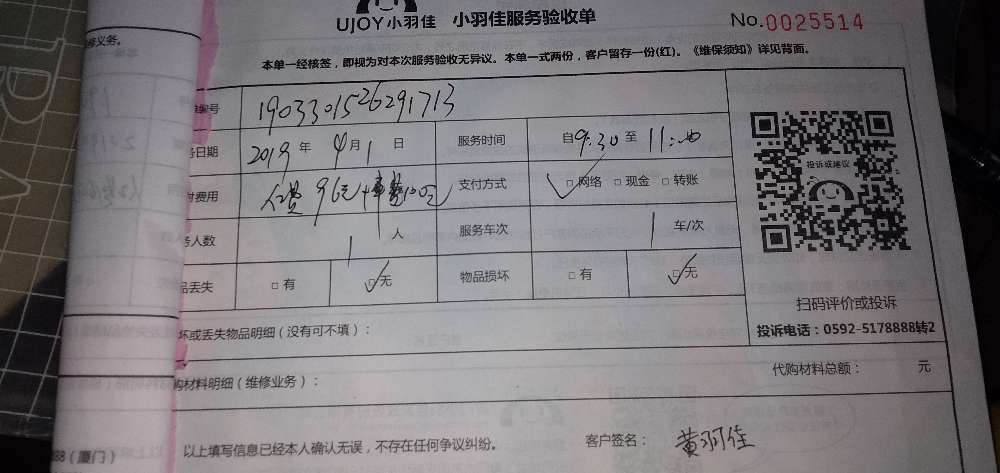 修义务。
UJOY小羽佳 小羽佳服务验收单
No.0025514
本单一经核签，即视为对本次服务验收无异议。本单一式两份，客户留存一份(红)。《维保须知》详见背面。
编号 1903301526291713
日期 2019 年 4 月 1 日 服务时间 自 9:30 至 11:00
费用 人费 96元+车费100元 支付方式 □网络 □现金 □转账
人数 1 人 服务车次 1 车/次
品丢失 □有 □无 物品损坏 □有 □无
投诉或建议
扫码评价或投诉
投诉电话：0592-5178888转2
坏或丢失物品明细（没有可不填）：
购材料明细（维修业务）： 代购材料总额： 元
以上填写信息已经本人确认无误，不存在任何争议纠纷。 客户签名： 黄羽佳
88（厦门）